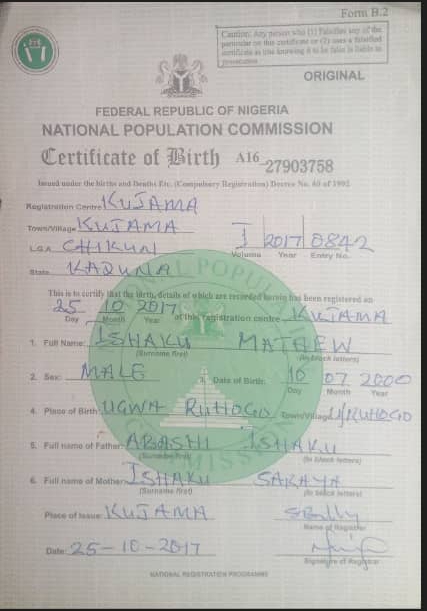 Form B.2
Caution: Any person who (1) Falsifies any of the
particular on this certificate or (2) uses a falsified
certificate as true knowing it to be false is liable to
prosecution
ORIGINAL
FEDERAL REPUBLIC OF NIGERIA
NATIONAL POPULATION COMMISSION
Certificate of Birth A16 27903758
Issued under the births and Deaths Etc. (Compulsory Registration) Decree No. 69 of 1992
Registration Centre KUJAMA
Town/Village KUJAMA
L.G.A. CHIKUN I 2017 0842
Volume Year Entry No.
State KADUNA
This is to certify that the birth, details of which are recorded herein has been registered on
25 10 2017 of this registration centre KUJAMA
Day Month Year
1. Full Name: ISHAKU MATHEW
(Surname first) (In block letters)
2. Sex: MALE 3. Date of Birth: 10 07 2000
Day Month Year
4. Place of Birth: UGWA RUHOGO Town/Village U/RUHOGO
5. Full name of Father: ABASHI ISHAKU
(Surname first) (In block letters)
6. Full name of Mother: ISHAKU SARAYA
(Surname first) (In block letters)
Place of Issue: KUJAMA
Name of Registrar
Date: 25-10-2017
Signature of Registrar
NATIONAL REGISTRATION PROGRAMME